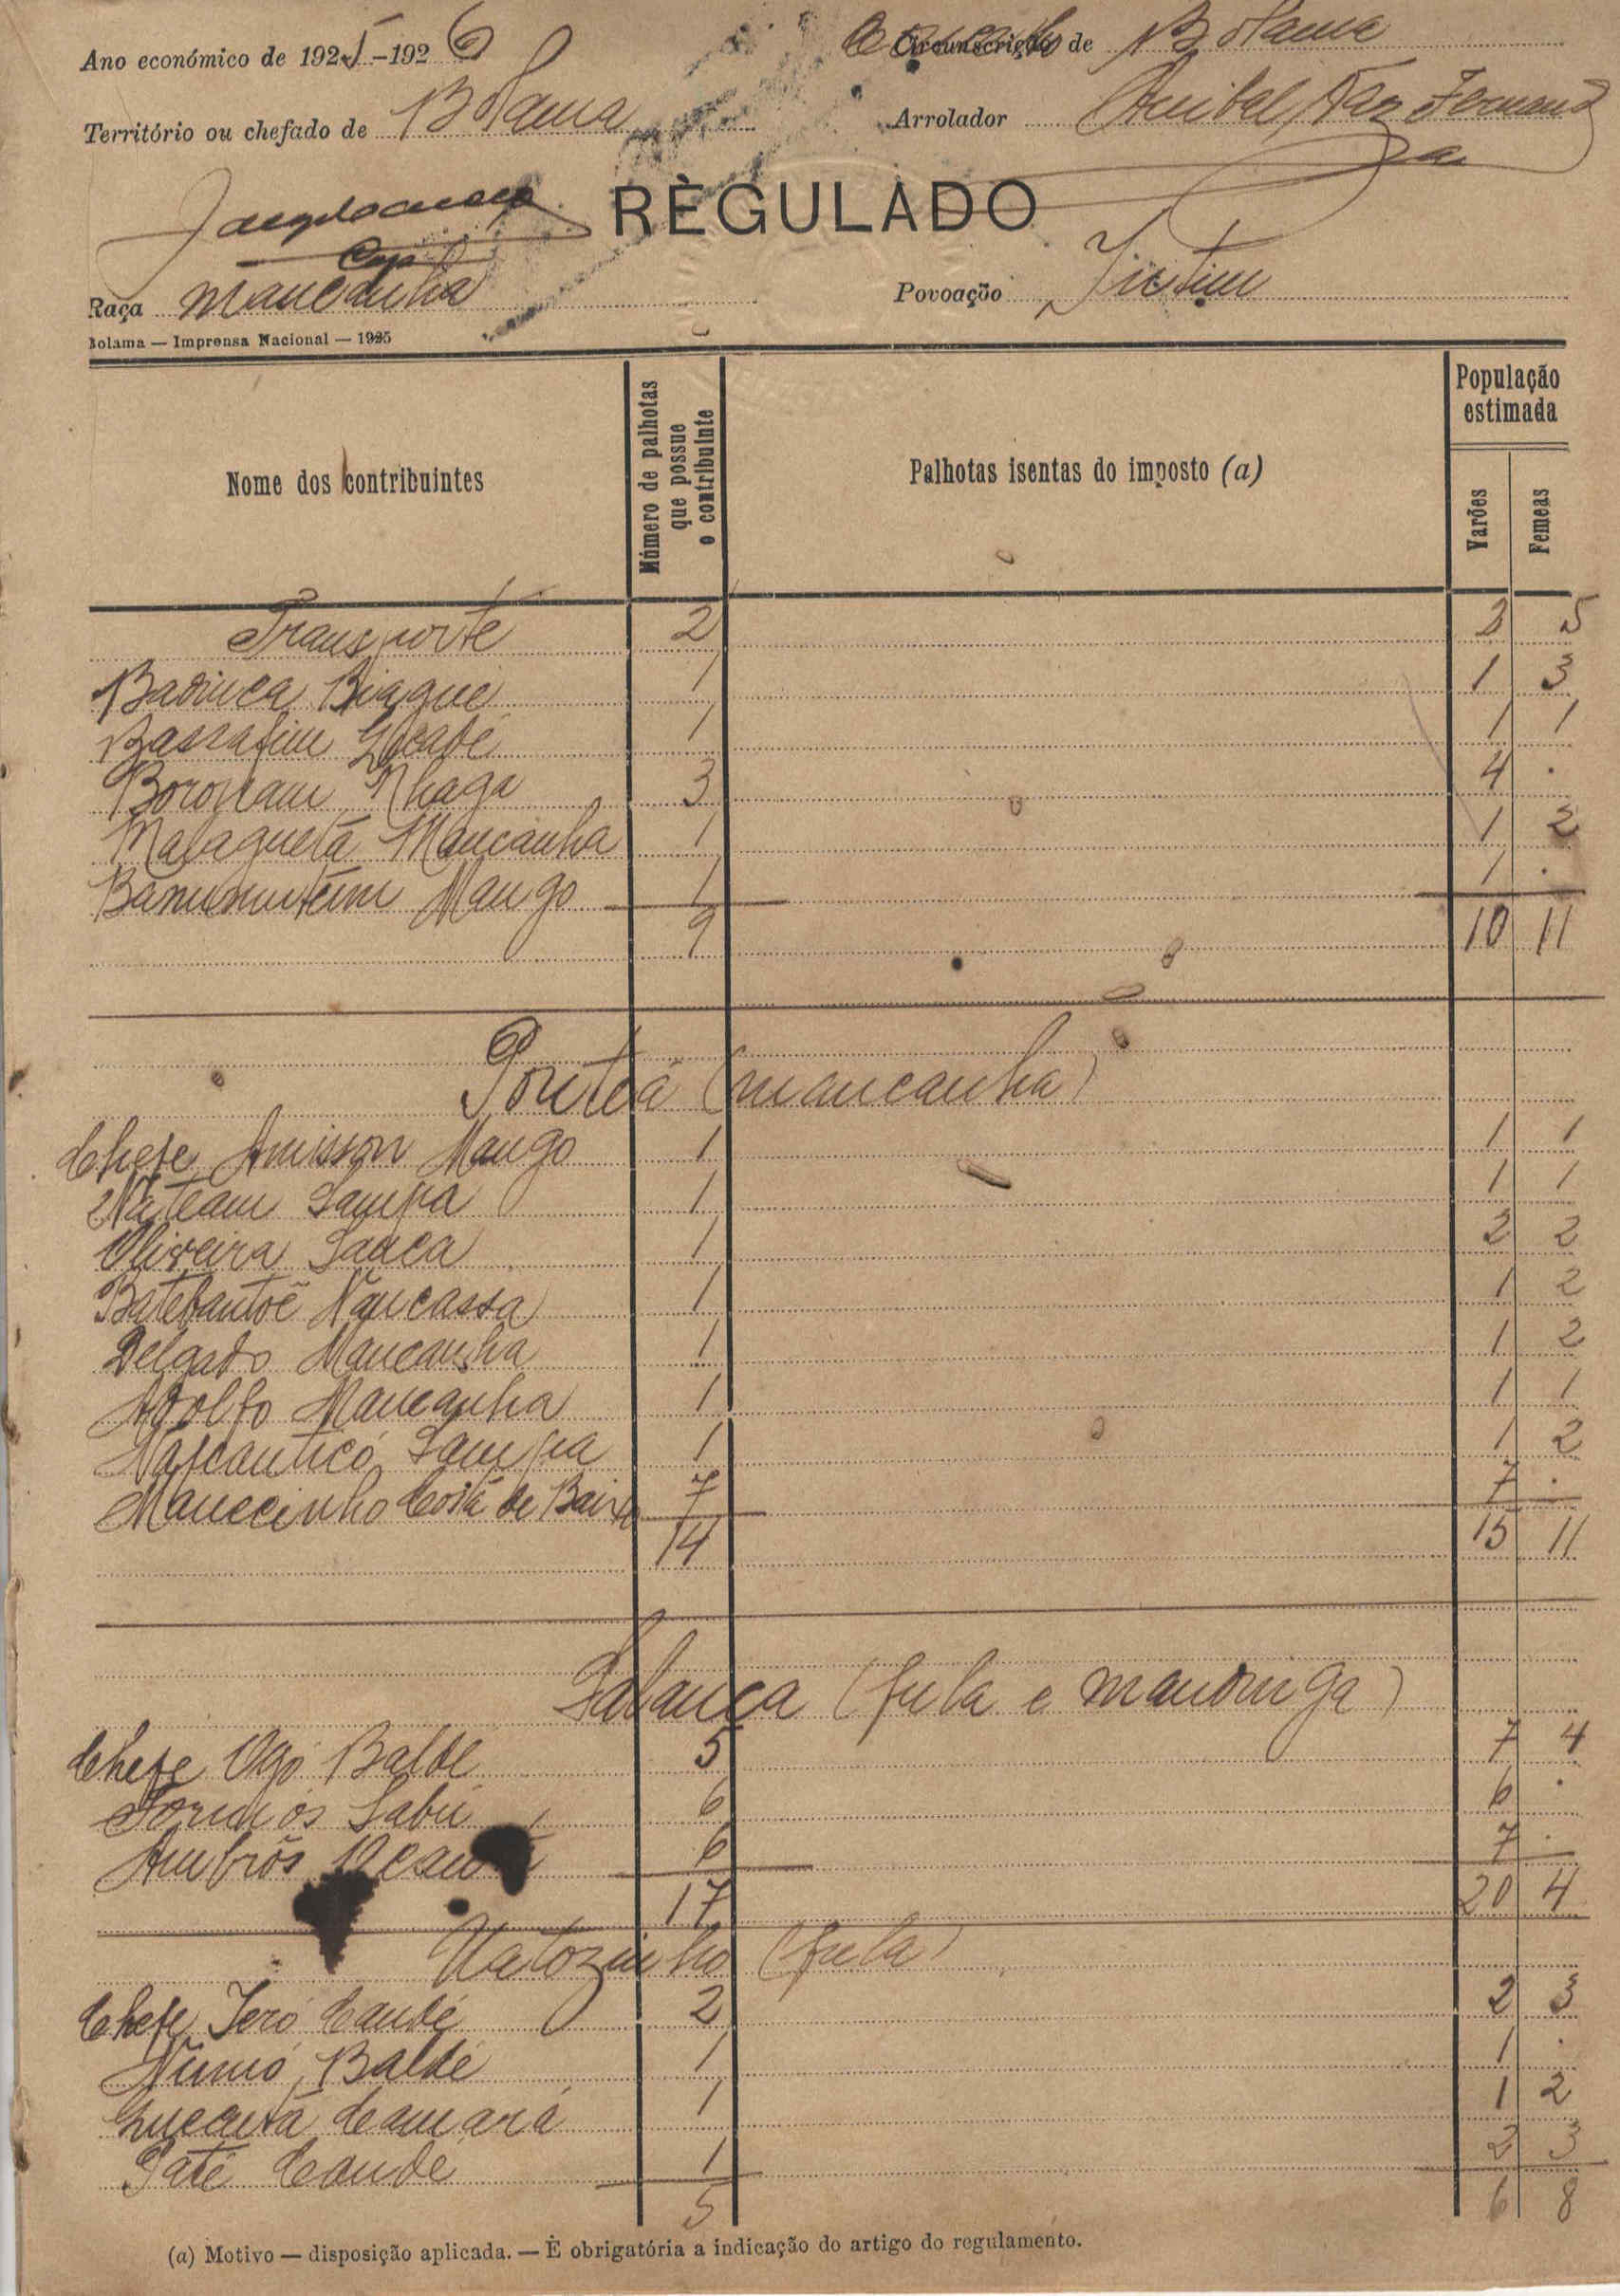 Ano económico de 1925-1926 Concelho Circunscrição de Bolama
Território ou chefado de Bolama Arrolador Anibal Vaz Fernandes
RÈGULADO
Raça Mancanha Povoação
Bolama — Imprensa Nacional — 1925
Nome dos contribuintes Número de palhotas que possue o contribuinte Palhotas isentas do imposto (a) População estimada
Varões Femeas
Transporte 2 2 5
Badinca Biague 1 1 3
Bassafim 1 1 1
Nhaga 3 4 .
Malagueta Mancanha 1 1 2
Mango 1 1 .
9 10 11
Ponta (mancanha)
Chefe Amisson Mango 1 1 1
Sampa 1 1 1
Oliveira Sanca 1 2 2
Nancassa 1 1 2
Delgado Mancanha 1 1 2
Adolfo Mancanha 1 1 1
Sampa 1 1 2
Costa de Baixo 7 7 .
14 15 11
(fula e mandinga)
Chefe Ogo Baldé 5 7 4
Sabú 6 6 .
Ambrós 6 7 .
17 20 4
(fula)
Chefe Jeró Candé 2 2 3
Baldé 1 1 .
Camará 1 1 2
Paté Candé 1 2 3
5 6 8
(a) Motivo — disposição aplicada. — È obrigatória a indicação do artigo do regulamento.